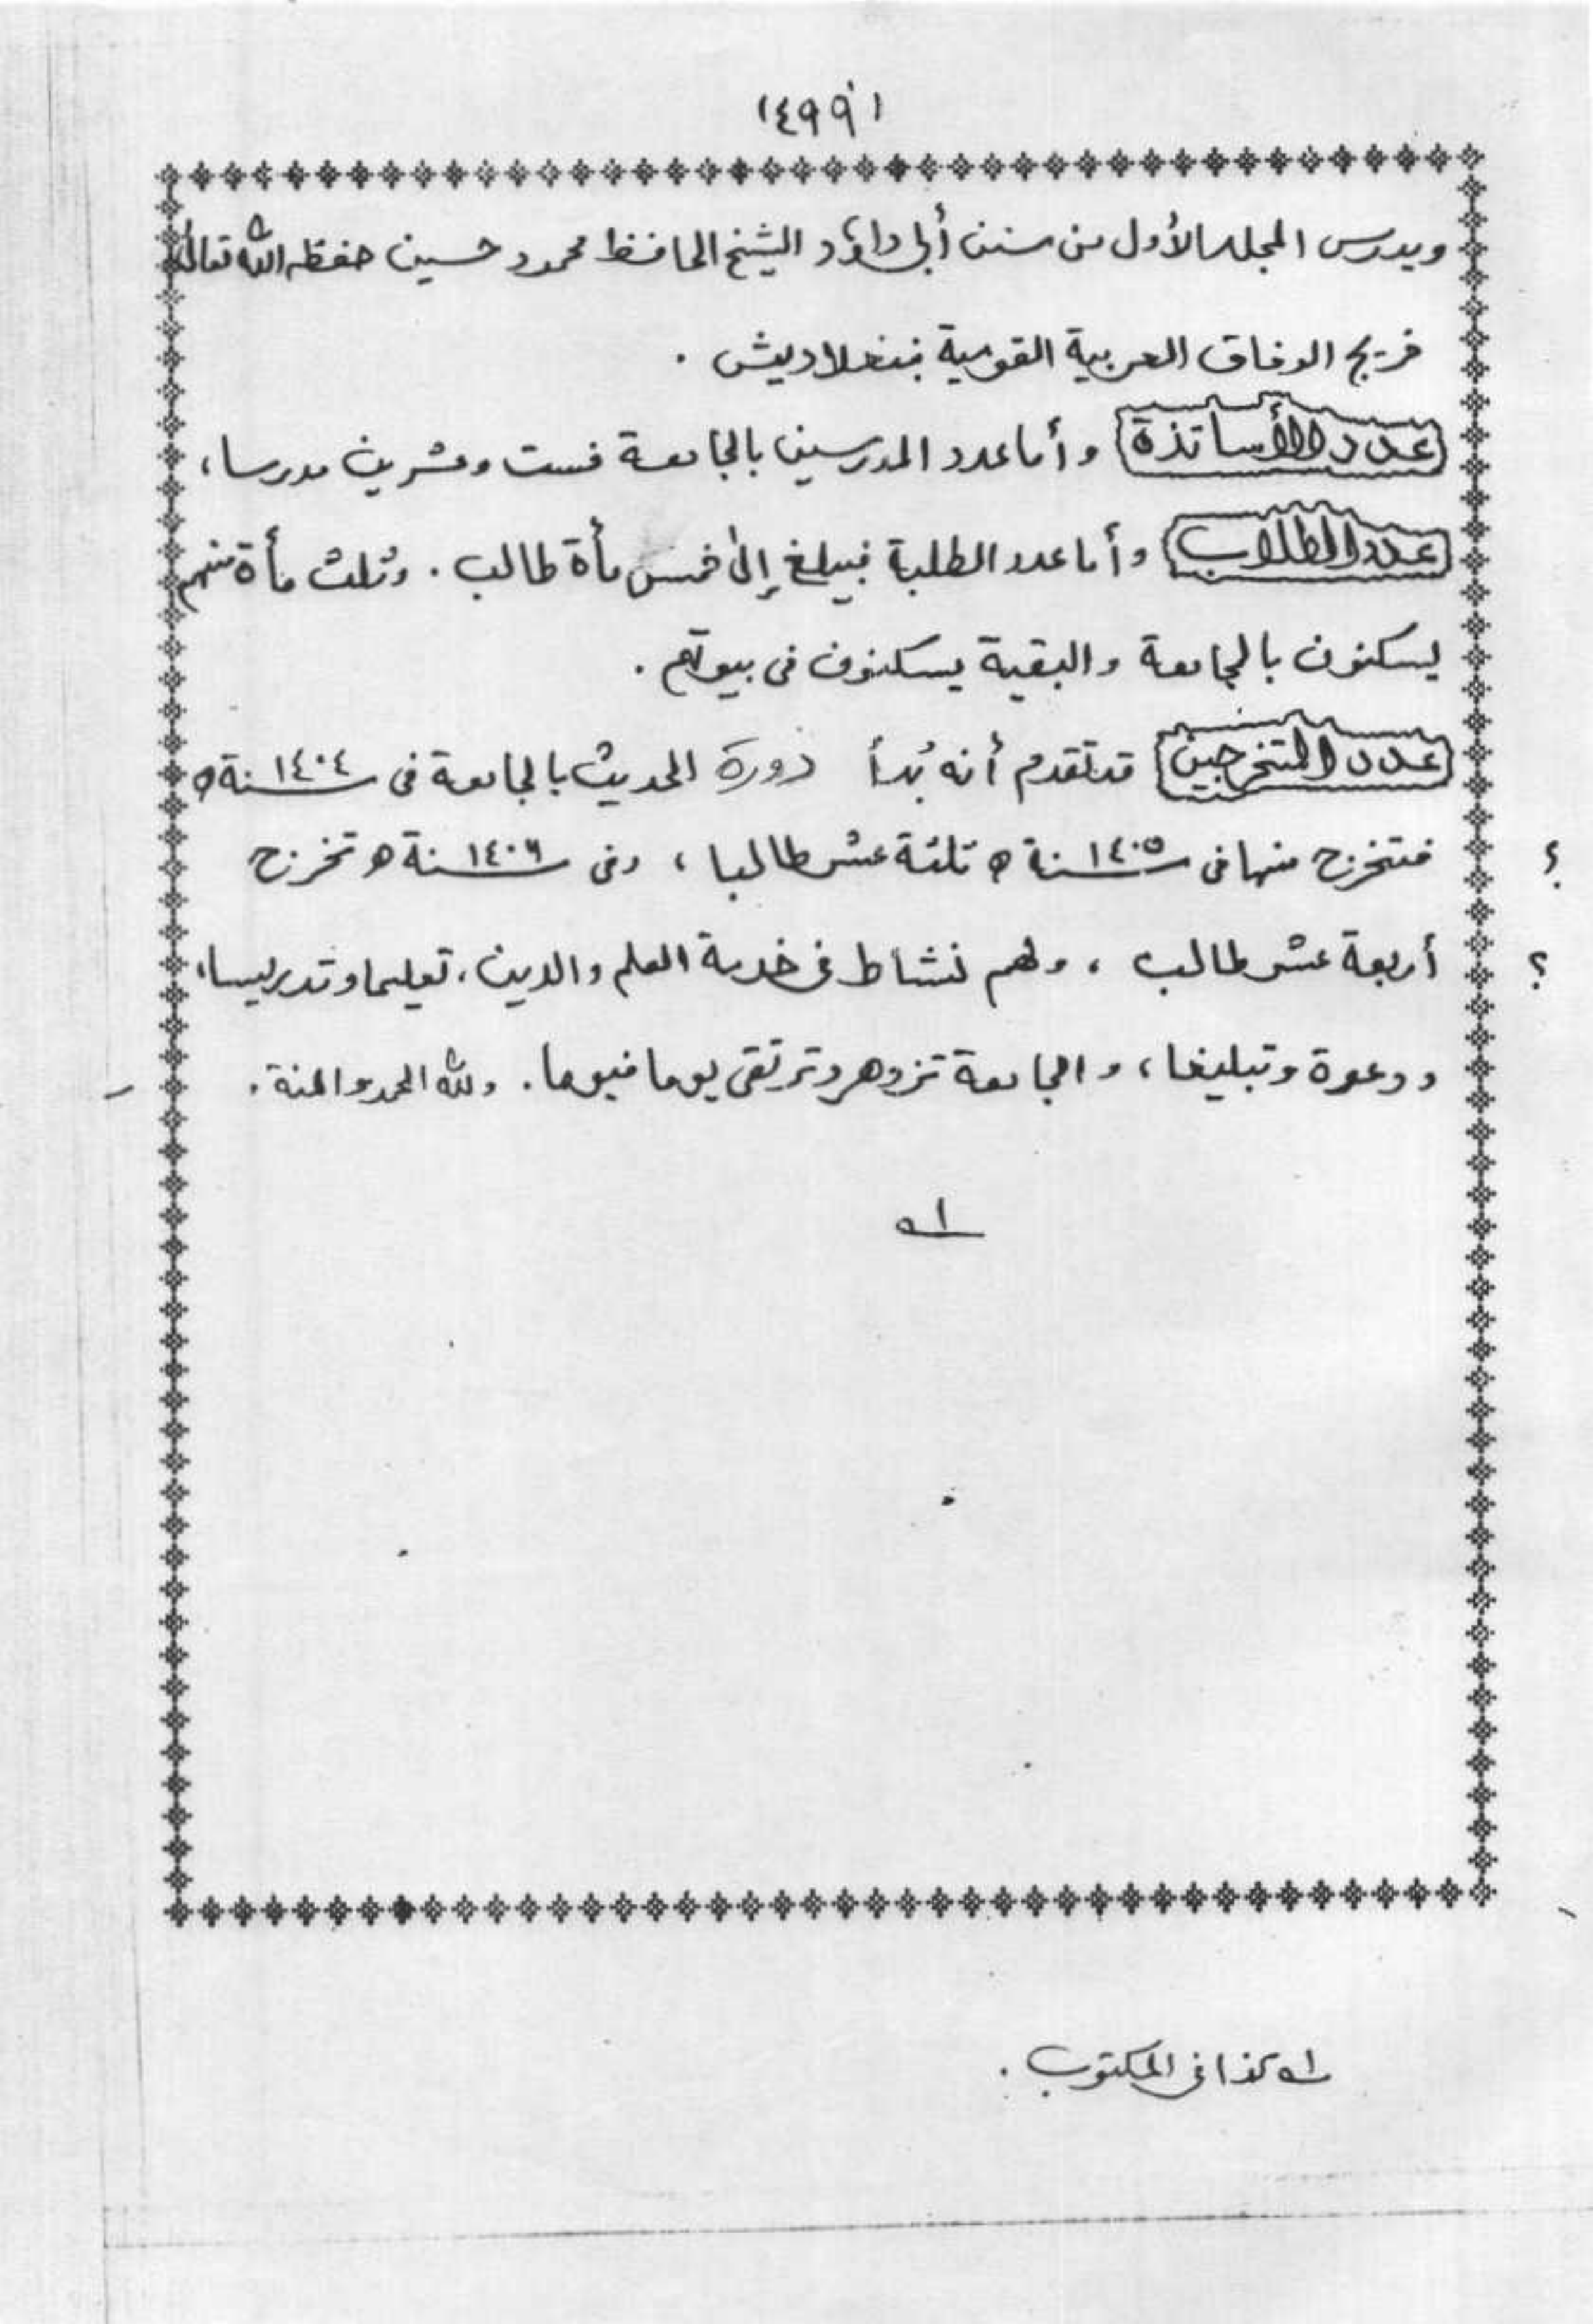 ١٤٩٩
ويدرس المجلد الأول من سنن أبي داؤد الشيخ الحافظ محمود حسين حفظه الله تعالى
خريج الوفاق العربية القومية ببنغلاديش .
عدد الأساتذة وأما عدد المدرسين بالجامعة فست وعشرين مدرسا ،
عدد الطلاب وأما عدد الطلبة فيبلغ إلى خمس مأة طالب . وثلث مأة منهم
يسكنون بالجامعة والبقية يسكنون فى بيوتهم .
عدد المتخرجين قد تقدم أنه بُدأ دورة الحديث بالجامعة فى سنة ١٤٠٤ ه
فتخرج منها فى سنة ١٤٠٥ ه ثلثة عشر طالبا ، وفى سنة ١٤٠٦ ه تخرج ؟
أربعة عشر طالب ، ولهم نشاط فى خدمة العلم والدين ، تعليما وتدريسا ، ؟
ودعوة وتبليغا ، والجامعة تزوهر وترتقى يوما فيوما . ولله الحمد والمنة .
اه
كذا فى المكتوب .